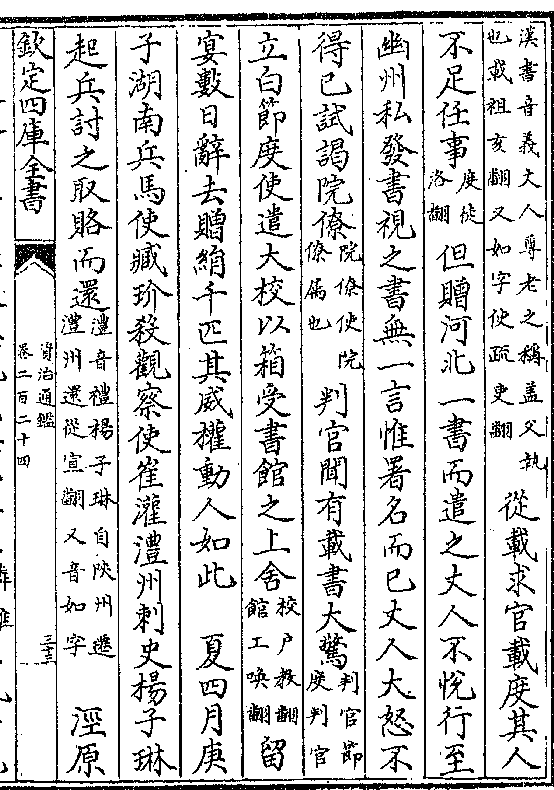 漢書音義丈人尊老之稱蓋父執也載祖亥翻又如字使疏吏翻從載求官載度其人
不足任事度徒洛翻但贈河北一書而遣之丈人不悅行至
幽州私發書視之書無一言惟署名而已丈人大怒不
得已試謁院僚院僚使院僚屬也判官聞有載書大驚判官節度判官
立白節度使遣大校以箱受書館之上舍校户教翻館工喚翻留
宴數日辭去贈絹千匹其威權動人如此　夏四月庚
子湖南兵馬使臧玠殺觀察使崔灌澧州刺史楊子琳
起兵討之取賂而還澧音禮楊子琳自陜州遷澧州還從宣翻又音如字　涇原
欽定四庫全書
資治通鑑
卷二百二十四
三十三